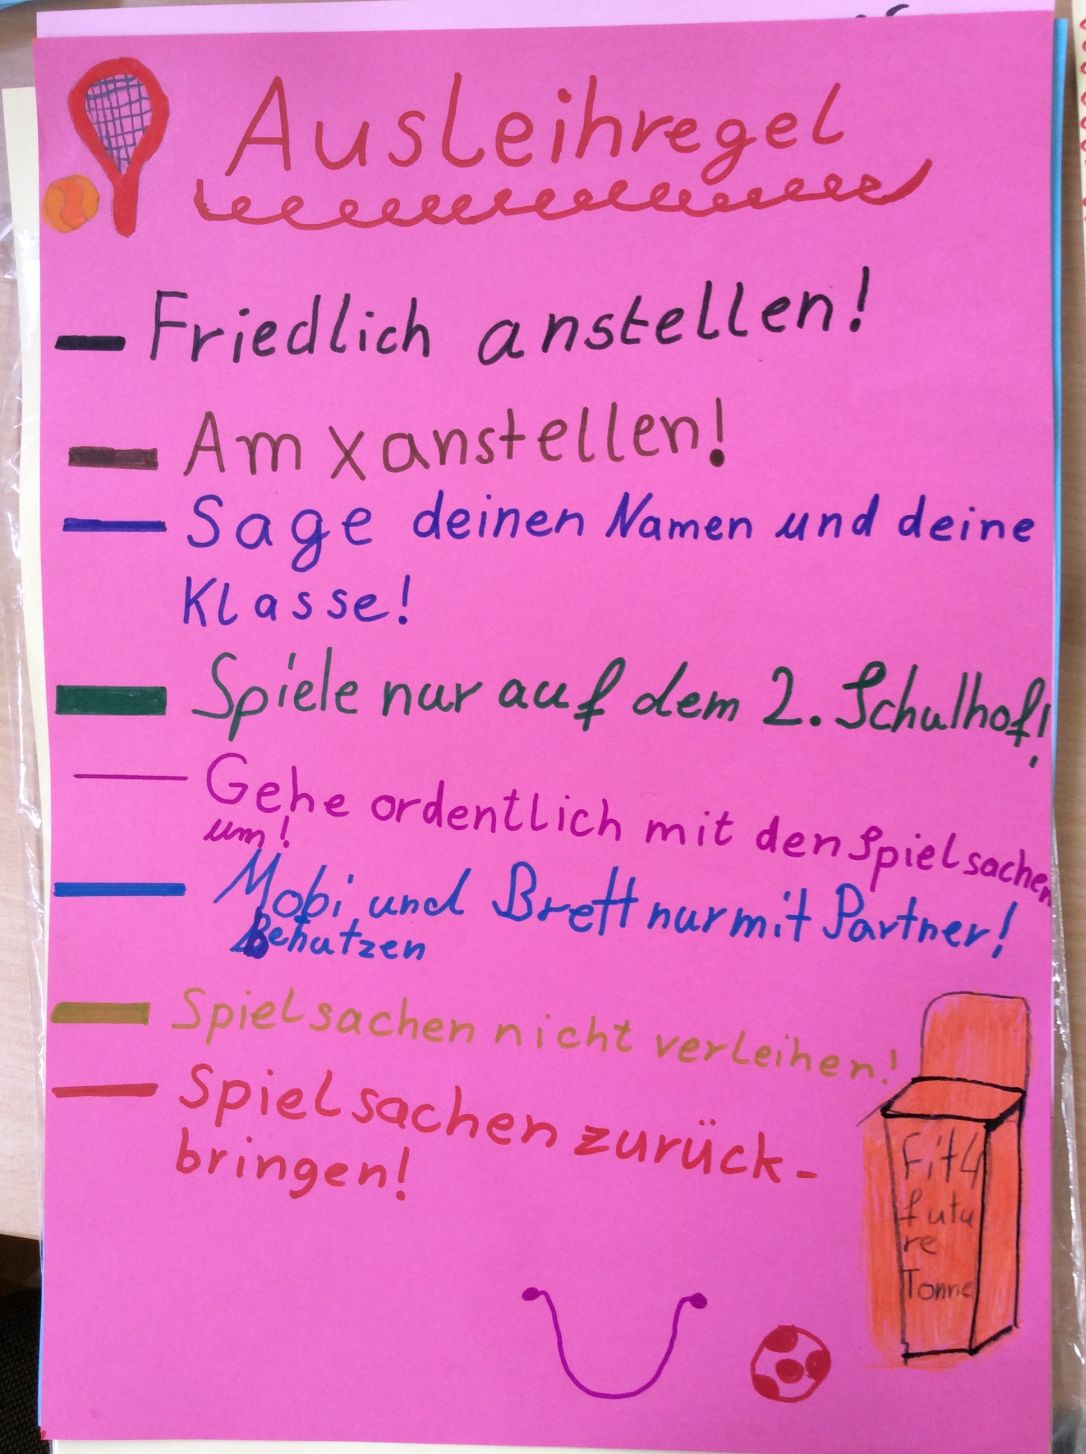 Ausleihregel
Friedlich anstellen!
Am x anstellen!
Sage deinen Namen und deine
Klasse!
Spiele nur auf dem 2. Schulhof!
Gehe ordentlich mit den Spielsachen
um!
Mobi und Brett nur mit Partner!
Behutzen
Spielsachen nicht verleihen!
Spielsachen zurück-
bringen!
Fit4
futu
re
Tonne